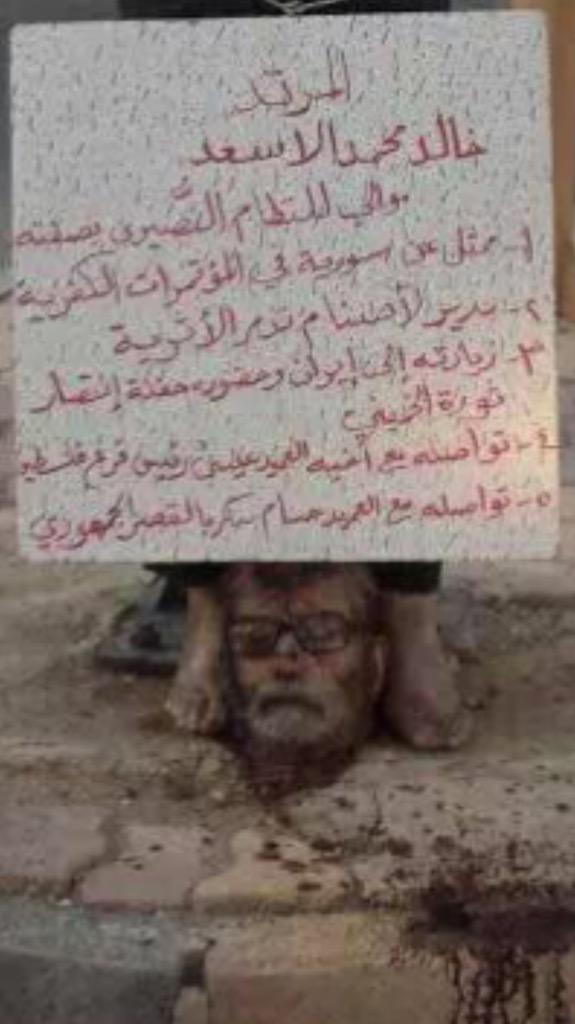 المرتد
خالد محمد الاسعد
موالي للنظام النُّصيري بصفته
١- ممثل عن سورية في المؤتمرات الكفرية
٢- مدير لأصنام تدمر الأثرية
٣- زيارته إلى إيران وحضوره حفلة إنتصار
ثورة الخميني
٤- تواصله مع أخيه العميد عيسى رئيس فرع فلسطين
٥- تواصله مع العميد حسام سكر بالقصر الجمهوري